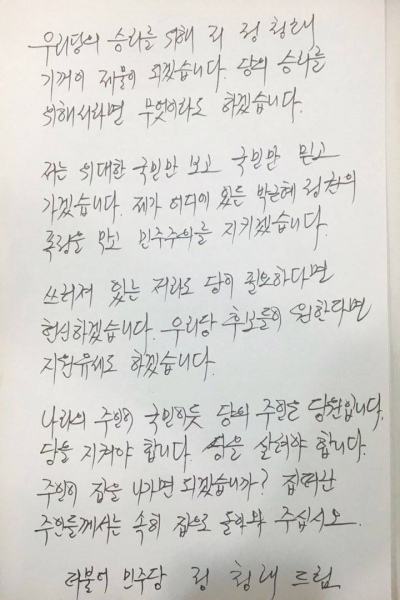 우리당의 승리를 위해 저 정청래
기꺼이 제물이 되겠습니다. 당의 승리를
위해서라면 무엇이라도 하겠습니다.
저는 위대한 국민만 보고 국민만 믿고
가겠습니다. 제가 어디에 있든 박근혜 정권의
폭정을 막고 민주주의를 지키겠습니다.
쓰러져 있는 저라도 당이 필요하다면
헌신하겠습니다. 우리당 후보들이 원한다면
지원유세도 하겠습니다.
나라의 주인이 국민이듯 당의 주인은 당원입니다.
당을 지켜야 합니다. 당을 살려야 합니다.
주인이 집을 나가면 되겠습니까? 집떠난
주인들께서는 속히 집으로 돌아와 주십시오.
더불어 민주당 정 청래 드림